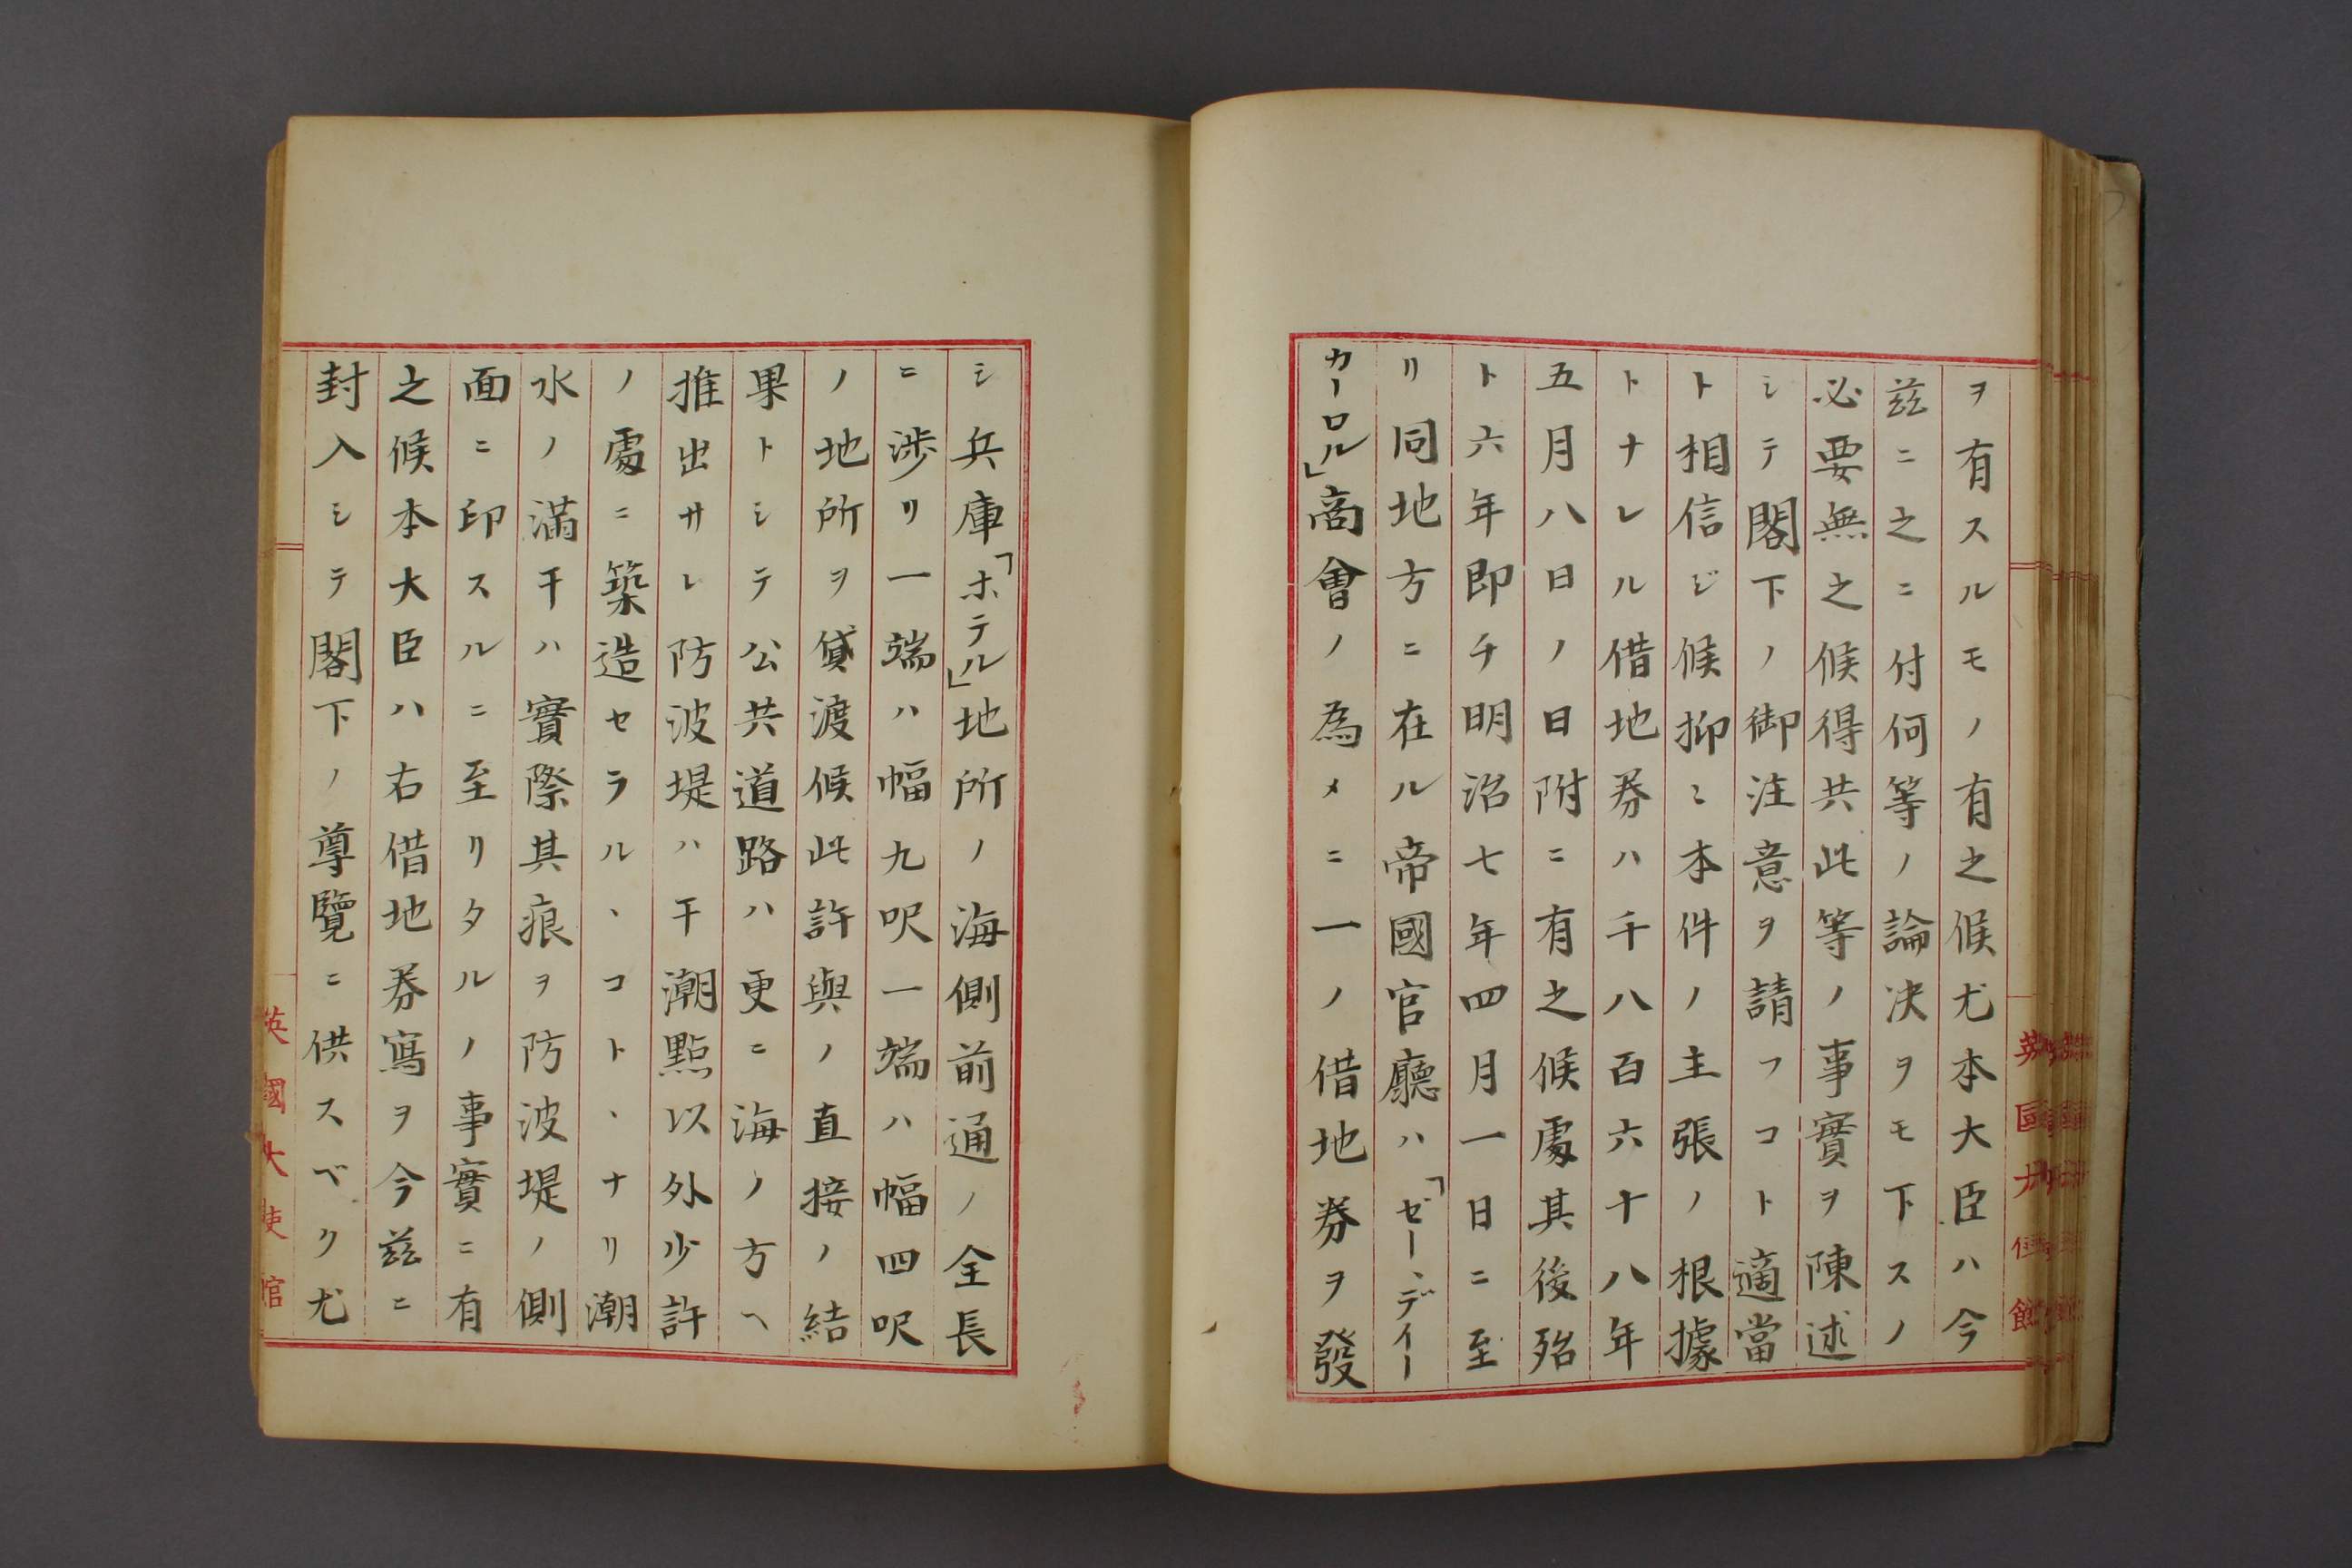 ヲ有スルモノ有之候尤本大臣ハ今
茲ニ之ニ付何等ノ論決ヲモ下スノ
必要無之候得共此等ノ事實ヲ陳述
シテ閣下ノ御注意ヲ請フコト適當
ト相信ジ候抑〻本件ノ主張ノ根據
トナレル借地券ハ千八百六十八年
五月八日ノ日附ニ有之候處其後殆
ト六年即チ明治七年四月一日ニ至
リ同地方ニ在ル帝國官廳ハ「ゼー、デイー
カーロル」商會ノ為メニ一ノ借地券ヲ發
シ兵庫「ホテル」地所ノ海側前通ノ全長
ニ渉リ一端ハ幅九呎一端ハ幅四呎
ノ地所ヲ貸渡候此許與ノ直接ノ結
果トシテ公共道路ハ更ニ海ノ方ヘ
推出サレ防波堤ハ干潮點以外少許
ノ處ニ築造セラルヽコトヽナリ潮
水ノ滿干ハ實際其痕ヲ防波堤ノ側
面ニ印スルニ至リタルノ事實ニ有
之候本大臣ハ右借地券寫ヲ今茲ニ
封入シテ閣下ノ尊覽ニ供スベク尤
英國大使館